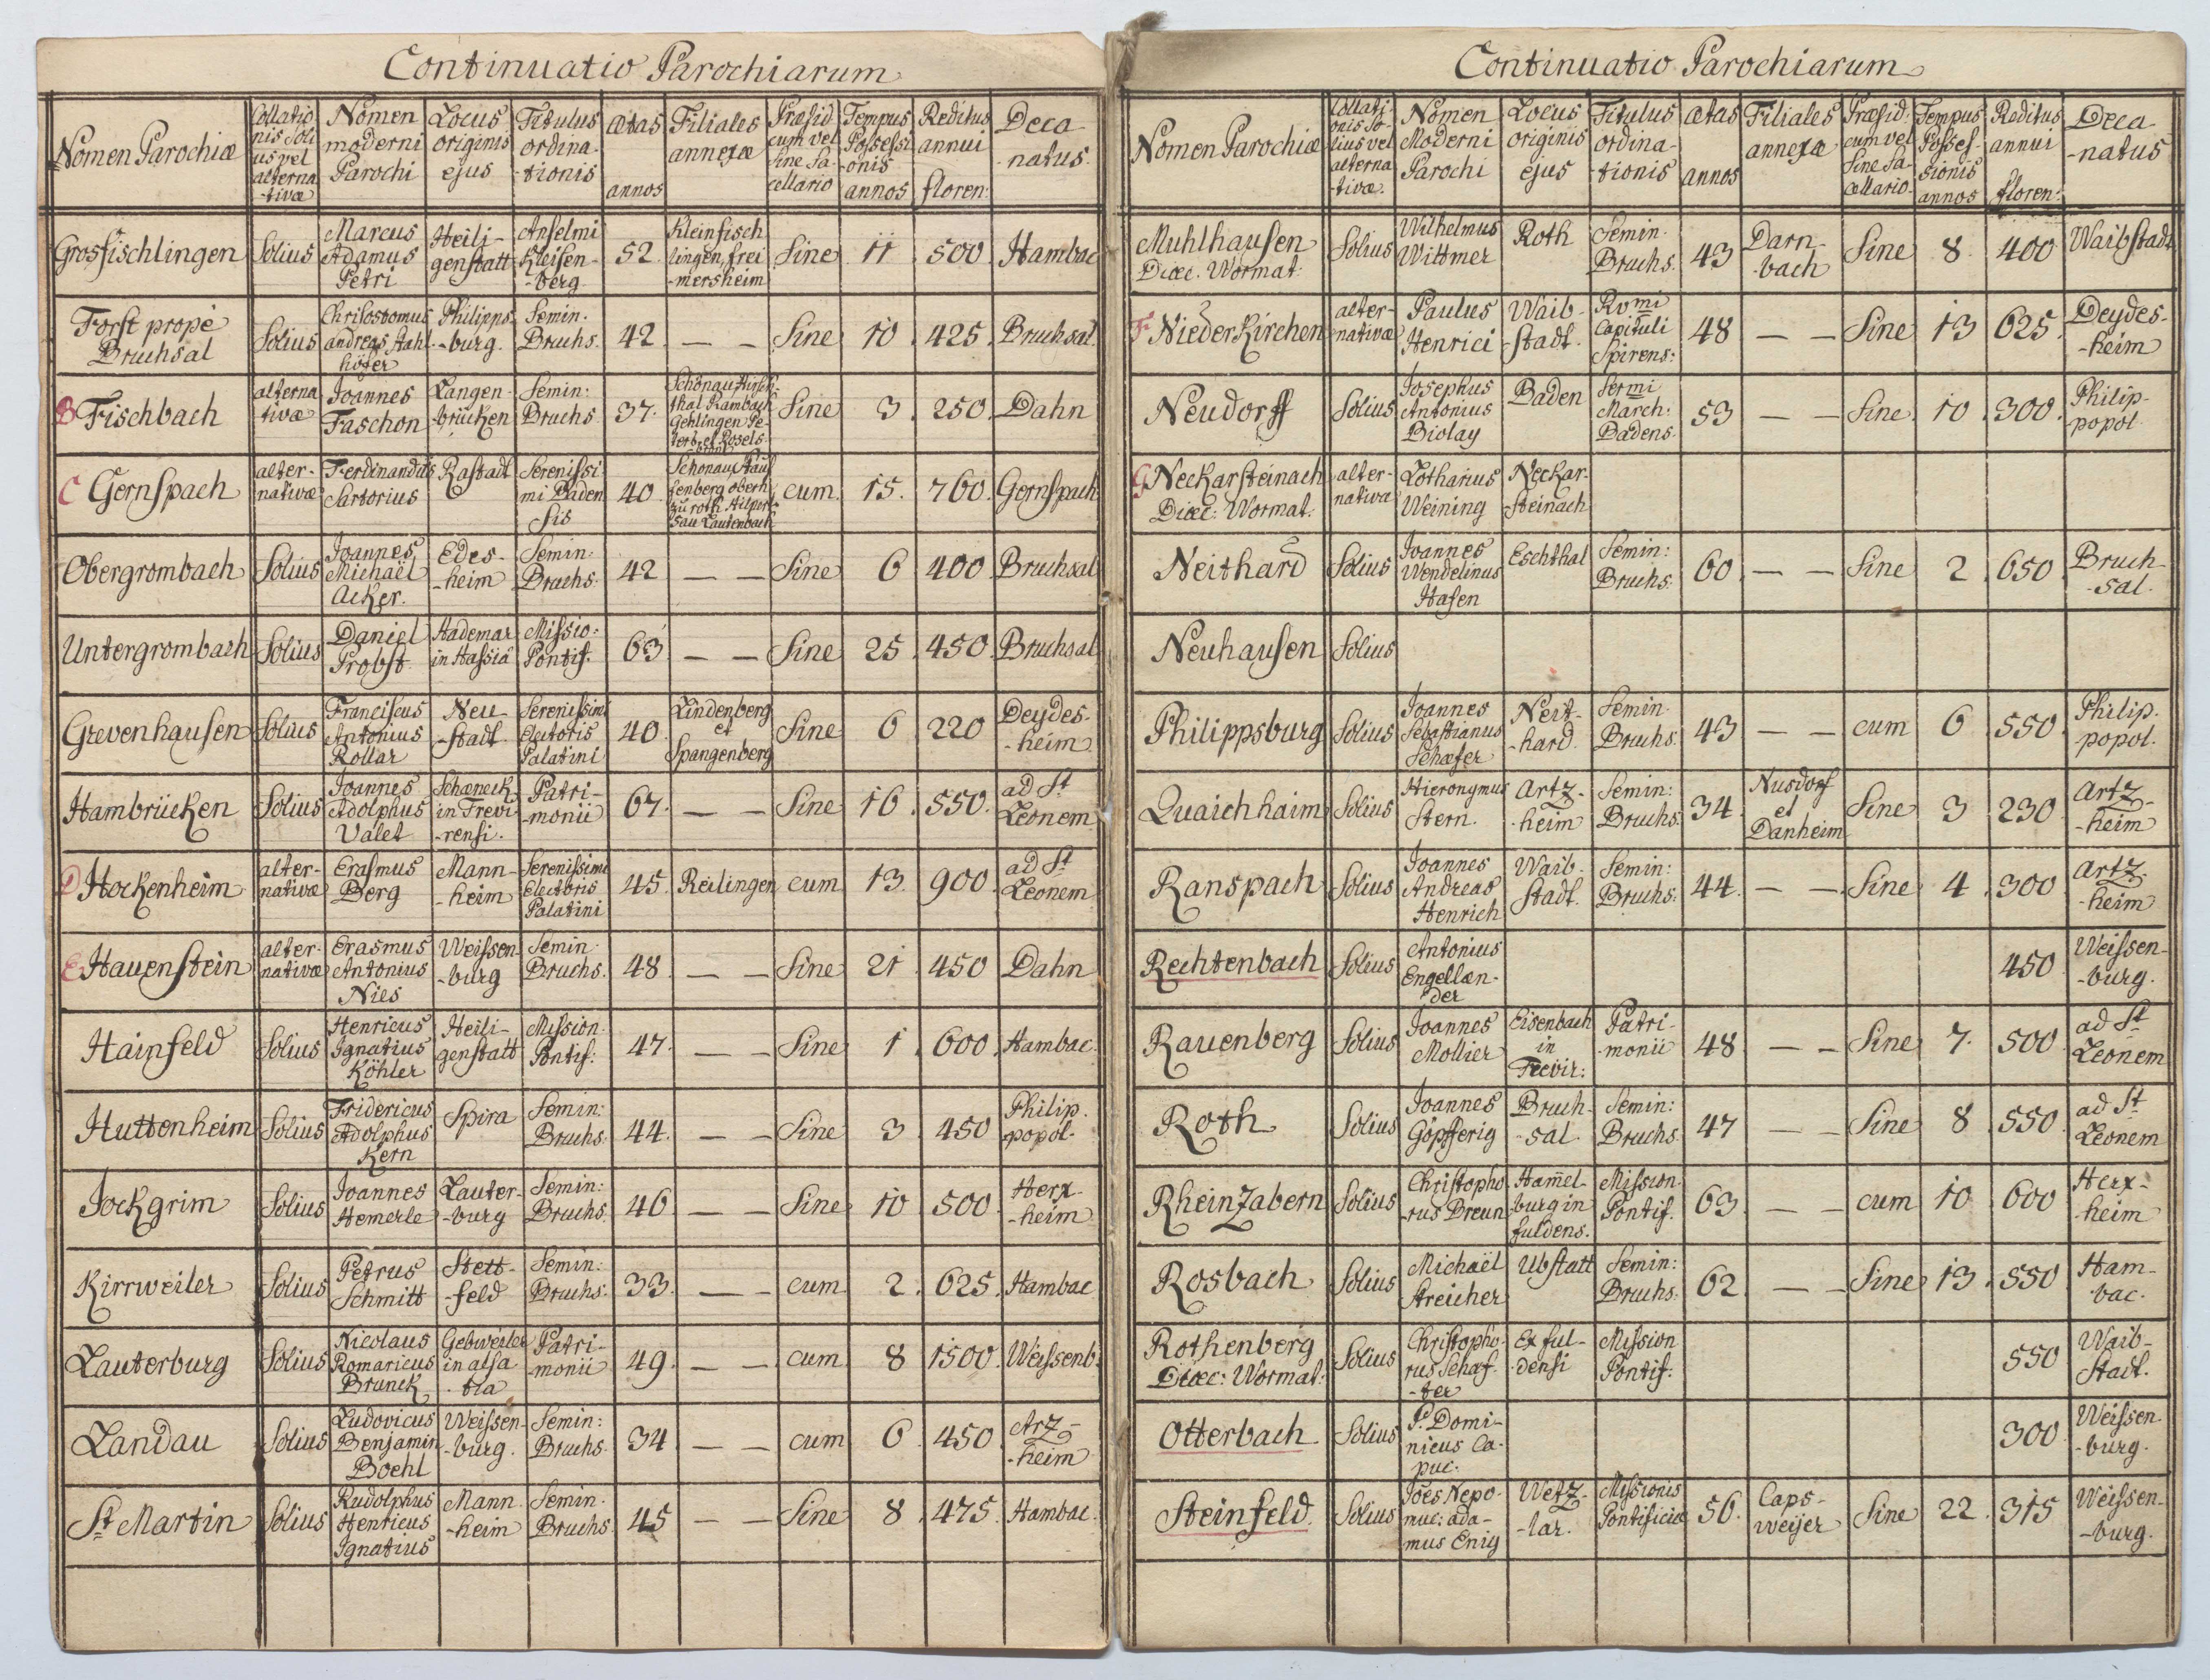 Continuatio Parochiarum
Nomen Parochiæ | Collatio nis Soli us vel alterna -tivæ | Nomen moderni Parochi | Locus originis ejus | Titulus ordina- -tionis | ætas annos | Filiales annexæ | Præsid: cum vel sine Sa- cellario | Tempus Possessi -onis annos | Reditus annui floren: | Deca -natus
Grosfischlingen | Solius | Marcus Adamus Petri | Heili- genstatt | Anselmi Kleisen- -berg | 52 | Kleinfisch lingen, frei -mersheim | Sine | 11 | 500 | Hambac
Forst propè Bruchsal | Solius | Chrisostomus andreas Stahl- höfer | Philipps- -burg. | Semin. Bruchs. | 42 | — — | Sine | 10 | 425. | Bruchsal.
B Fischbach | alterna tivæ | Joannes Faschon | Langen- -brücken | Semin: Bruchs | 37. | Schönau Hirsch- thal Rambach Gehlingen Pe- | Sine | 3 | 250 | Dahn
C Gernspach | alter- nativæ | Ferdinandus Sartorius | Rastadt | Serenissi mi Baden sis | 40. | Schönau Stauf fenberg obern zu roth Hilper- sau Lautenbach | cum. | 15. | 760. | Gernspach
Obergrombach | Solius | Joannes Michaël Acker. | Edes- -heim | Semin: Bruchs. | 42 | — — | Sine | 6 | 400 | Bruchsal
Untergrombach | Solius | Daniel Probst. | Hademar in Hassia | Missio: Pontif. | 63 | — — | Sine | 25 | 450. | Bruchsal
Grevenhausen | Solius | Franciscus Antonius Rollar | Neu -stadt. | Serenissimi Electoris Palatini | 40. | Lindenberg et Spangenberg | Sine | 6 | 220 | Deydes- -heim
Hambrücken | Solius | Joannes Adolphus Valet | Schæneck in Trevi -rensi. | Patri- -monii | 67. | — — | Sine | 16 | 550. | ad St Leonem
D Hockenheim | alter- nativæ | Erasmus Berg | Mann- -heim | Serenissimi Electoris Palatini | 45. | Reilingen | cum | 13 | 900. | ad St Leonem
E Hauenstein | alter- nativæ | Erasmus Antonius Nies | Weissen -burg | Semin. Bruchs. | 48 | — — | Sine | 21 | 450 | Dahn
Hainfeld | Solius | Henricus Ignatius Köhler | Heili- genstatt | Mission. Pontif: | 47. | — — | Sine | 1 | 600 | Hambac.
Huttenheim | Solius | Fridericus Adolphus Kern | Spira | Semin: Bruchs. | 44. | — — | Sine | 3 | 450 | Philip. popol.
Jockgrim | Solius | Joannes Hemerle | Lauter- -burg | Semin: Bruchs. | 46 | — — | Sine | 10 | 500 | Herx- -heim
Kirrweiler | Solius | Petrus Schmitt | Stett- -feld | Semin: Bruchs: | 33. | — — | cum | 2. | 625. | Hambac
Lauterburg | Solius | Nicolaus Romaricus Brunck | Gebweiler in alsa -tia | Patri- -monii | 49. | — — | cum | 8 | 1500 | Weissenb.
Landau | Solius | Ludovicus Benjamin Boehl | Weissen- -burg. | Semin: Bruchs. | 34 | — — | cum | 6 | 450 | Arz- -heim
St Martin | Solius | Rudolphus Henricus Ignatius | Mann -heim | Semin. Bruchs | 45 | — — | Sine | 8 | 475. | Hambac.
Continuatio Parochiarum
Nomen Parochiæ | Collati- onis So- lius vel alterna -tivæ. | Nomen Moderni Parochi | Locus originis ejus | Titulus ordina- -tionis | ætas annos | Filiales annexæ | Præsid: cum vel Sine Sa- cellario | Tempus Posses- sionis annos | Reditus annui floren: | Deca- -natus
Muhlhausen Diœc. Wormat: | Solius | Wilhelmus Wittmer | Roth | Semin. Bruchs. | 43 | Darn- -bach | Sine | 8. | 400 | Waibstadt
F NiederKirchen | alter- nativæ | Paulus Henrici | Waib- -stadt. | Rvmi Capituli Spirens: | 48 | — — | Sine | 13 | 625 | Deydes- -heim
Neudorff | Solius | Josephus Antonius Biolay | Baden | Sermi March: Badens. | 53 | — — | Sine | 10 | 300. | Philip- popol.
G Neckarsteinach Diœc: Wormat. | alter- nativa | Lotharius Weining | Neckar- steinach
Neithard | Solius | Joannes Wendelinus Hasen | Eschthal | Semin: Bruchs. | 60 | — — | Sine | 2 | 650 | Bruch- -sal.
Neuhausen | Solius
Philippsburg | Solius | Joannes Sebastianus Schæfer | Neit- -hard. | Semin. Bruchs. | 43 | — — | cum | 6 | 550. | Philip. popol.
Quaichhaim | Solius | Hieronymus Stern. | Artz- -heim | Semin: Bruchs. | 34. | Nusdorf et Danheim | Sine | 3 | 230 | Artz- -heim
Ranspach | Solius | Joannes Andreas Henrich | Waib. stadt. | Semin: Bruchs: | 44. | — — | Sine | 4 | 300 | Artz- -heim
Rechtenbach | Solius | Antonius Engellæn- der | 450 | Weissen- -burg.
Rauenberg | Solius | Joannes Mollier | Eisenbach in Trevir: | Patri- monii | 48 | — — | Sine | 7. | 500 | ad St Leonem
Roth | Solius | Joannes Göpfferig | Bruch- -sal. | Semin: Bruchs. | 47 | — — | Sine | 8 | 550. | ad St Leonem
Rheinzabern | Solius | Christopho -rus Breun | Ham̄el- burg in fuldens. | Mission. Pontif. | 63. | — — | cum | 10 | 600 | Herx- heim
Rosbach | Solius | Michaël Streicher | Ubstatt | Semin: Bruchs. | 62. | — — | Sine | 13 | 550 | Ham- bac.
Rothenberg Diœc: Wormat: | Solius | Christopho- rus Schæf- -fer | Ex ful- densi | Mission Pontif: | 550 | Waib- Stadt.
Otterbach | Solius | P. Domi- nicus Ca- puc. | 300. | Weissen- -burg.
Steinfeld. | Solius | Joes Nepo- muc: ada- mus Enig | Wetz- -lar. | Missionis Pontificiæ | 56. | Caps- weijer | Sine | 22. | 315 | Weissen- -burg.